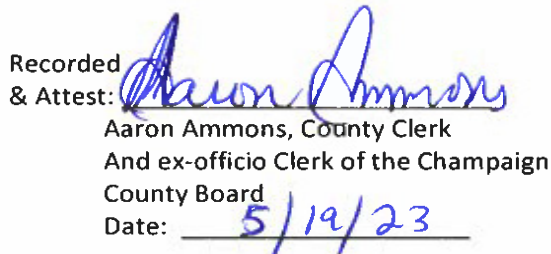 Recorded
& Attest: Aaron Ammons
Aaron Ammons, County Clerk
And ex-officio Clerk of the Champaign
County Board
Date: 5/19/23